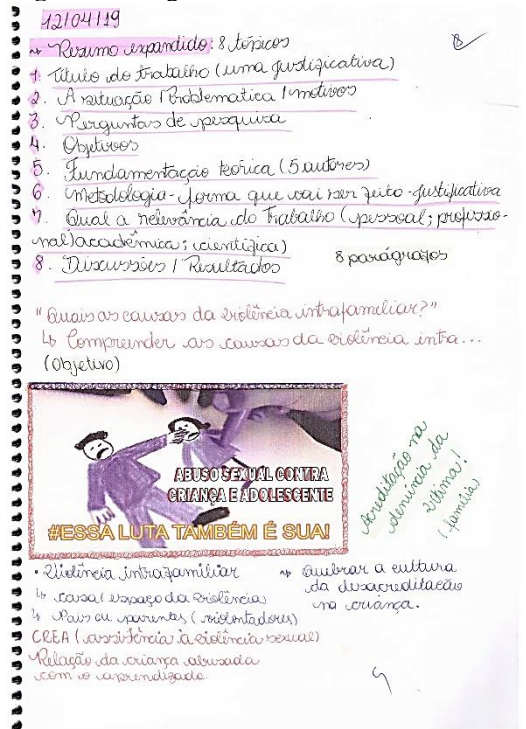 12/04/19
Resumo expandido: 8 tópicos
1. Título do trabalho (uma justificativa)
2. A situação / Problematica / motivos
3. Perguntas de pesquisa
4. Objetivos
5. Fundamentação teórica (5 autores)
6. Metodologia - forma que vai ser feito - justificativa
7. Qual a relevância do trabalho (pessoal; profissio-
nal) acadêmica; científica)
8. Discussões / Resultados
8 parágrafos
"Quais as causas da violência intrafameliar?"
↳ Compreender as causas da violência intra...
(Objetivo)
ABUSO SEXUAL CONTRA
CRIANÇA E ADOLESCENTE
#ESSA LUTA TAMBÉM É SUA!
Acreditação na
denuncia da
vítima!
(família)
• Violência intrafamiliar
↳ casa / espaço da violência
↳ Pais ou parentes (violentadores)
CREA (assistência à violência sexual)
Relação da criança abusada
com o aprendizado.
Quebrar a cultura
da desacreditação
na criança.